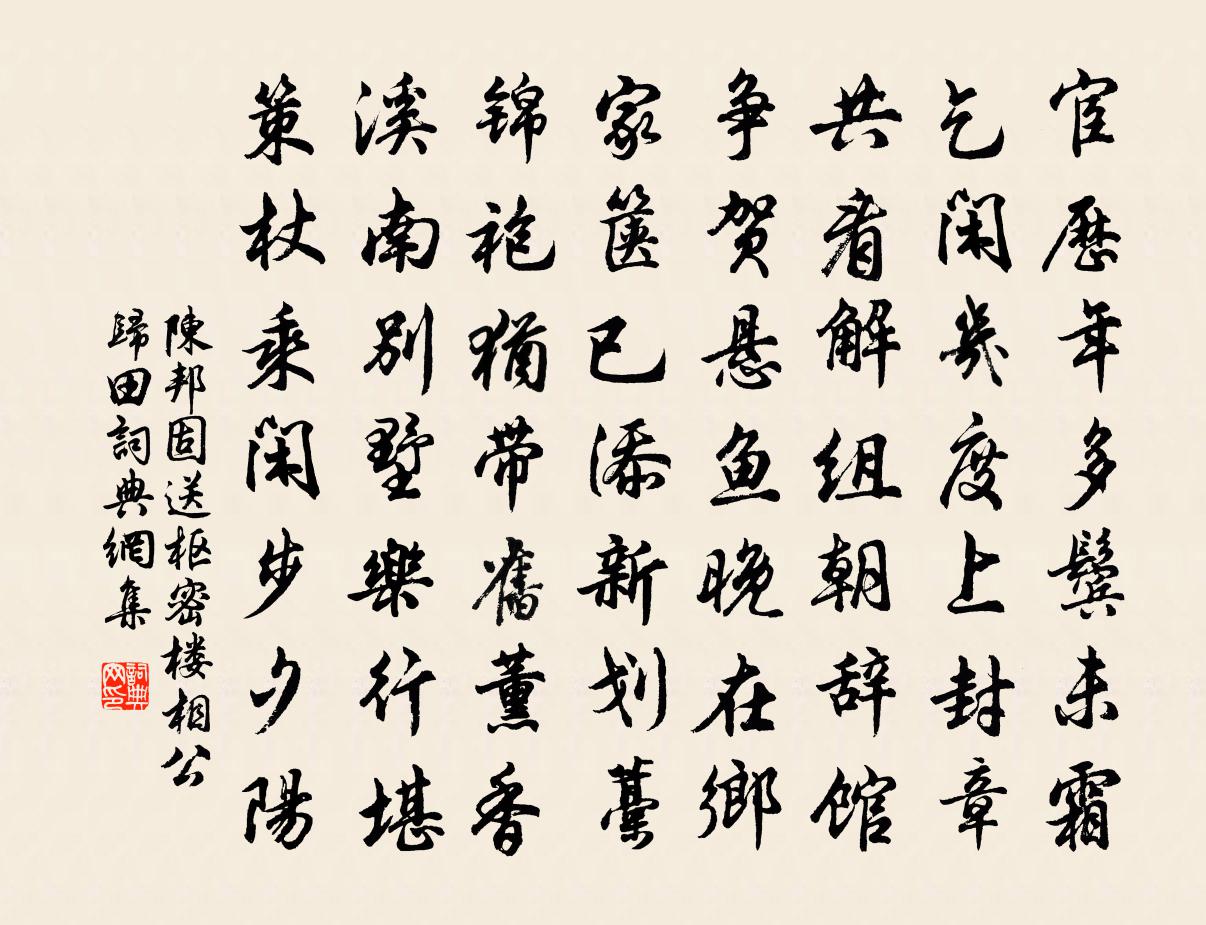 宦歷年多鬢未霜
乞闲幾度上封章
共看解组朝辞馆
争贺悬鱼晚在鄉
家箧已添新划藁
锦袍犹带舊薰香
溪南別墅樂行堪
策杖乘闲步夕陽
陳邦固送枢密楼相公
歸田詞典網集
詞典网印